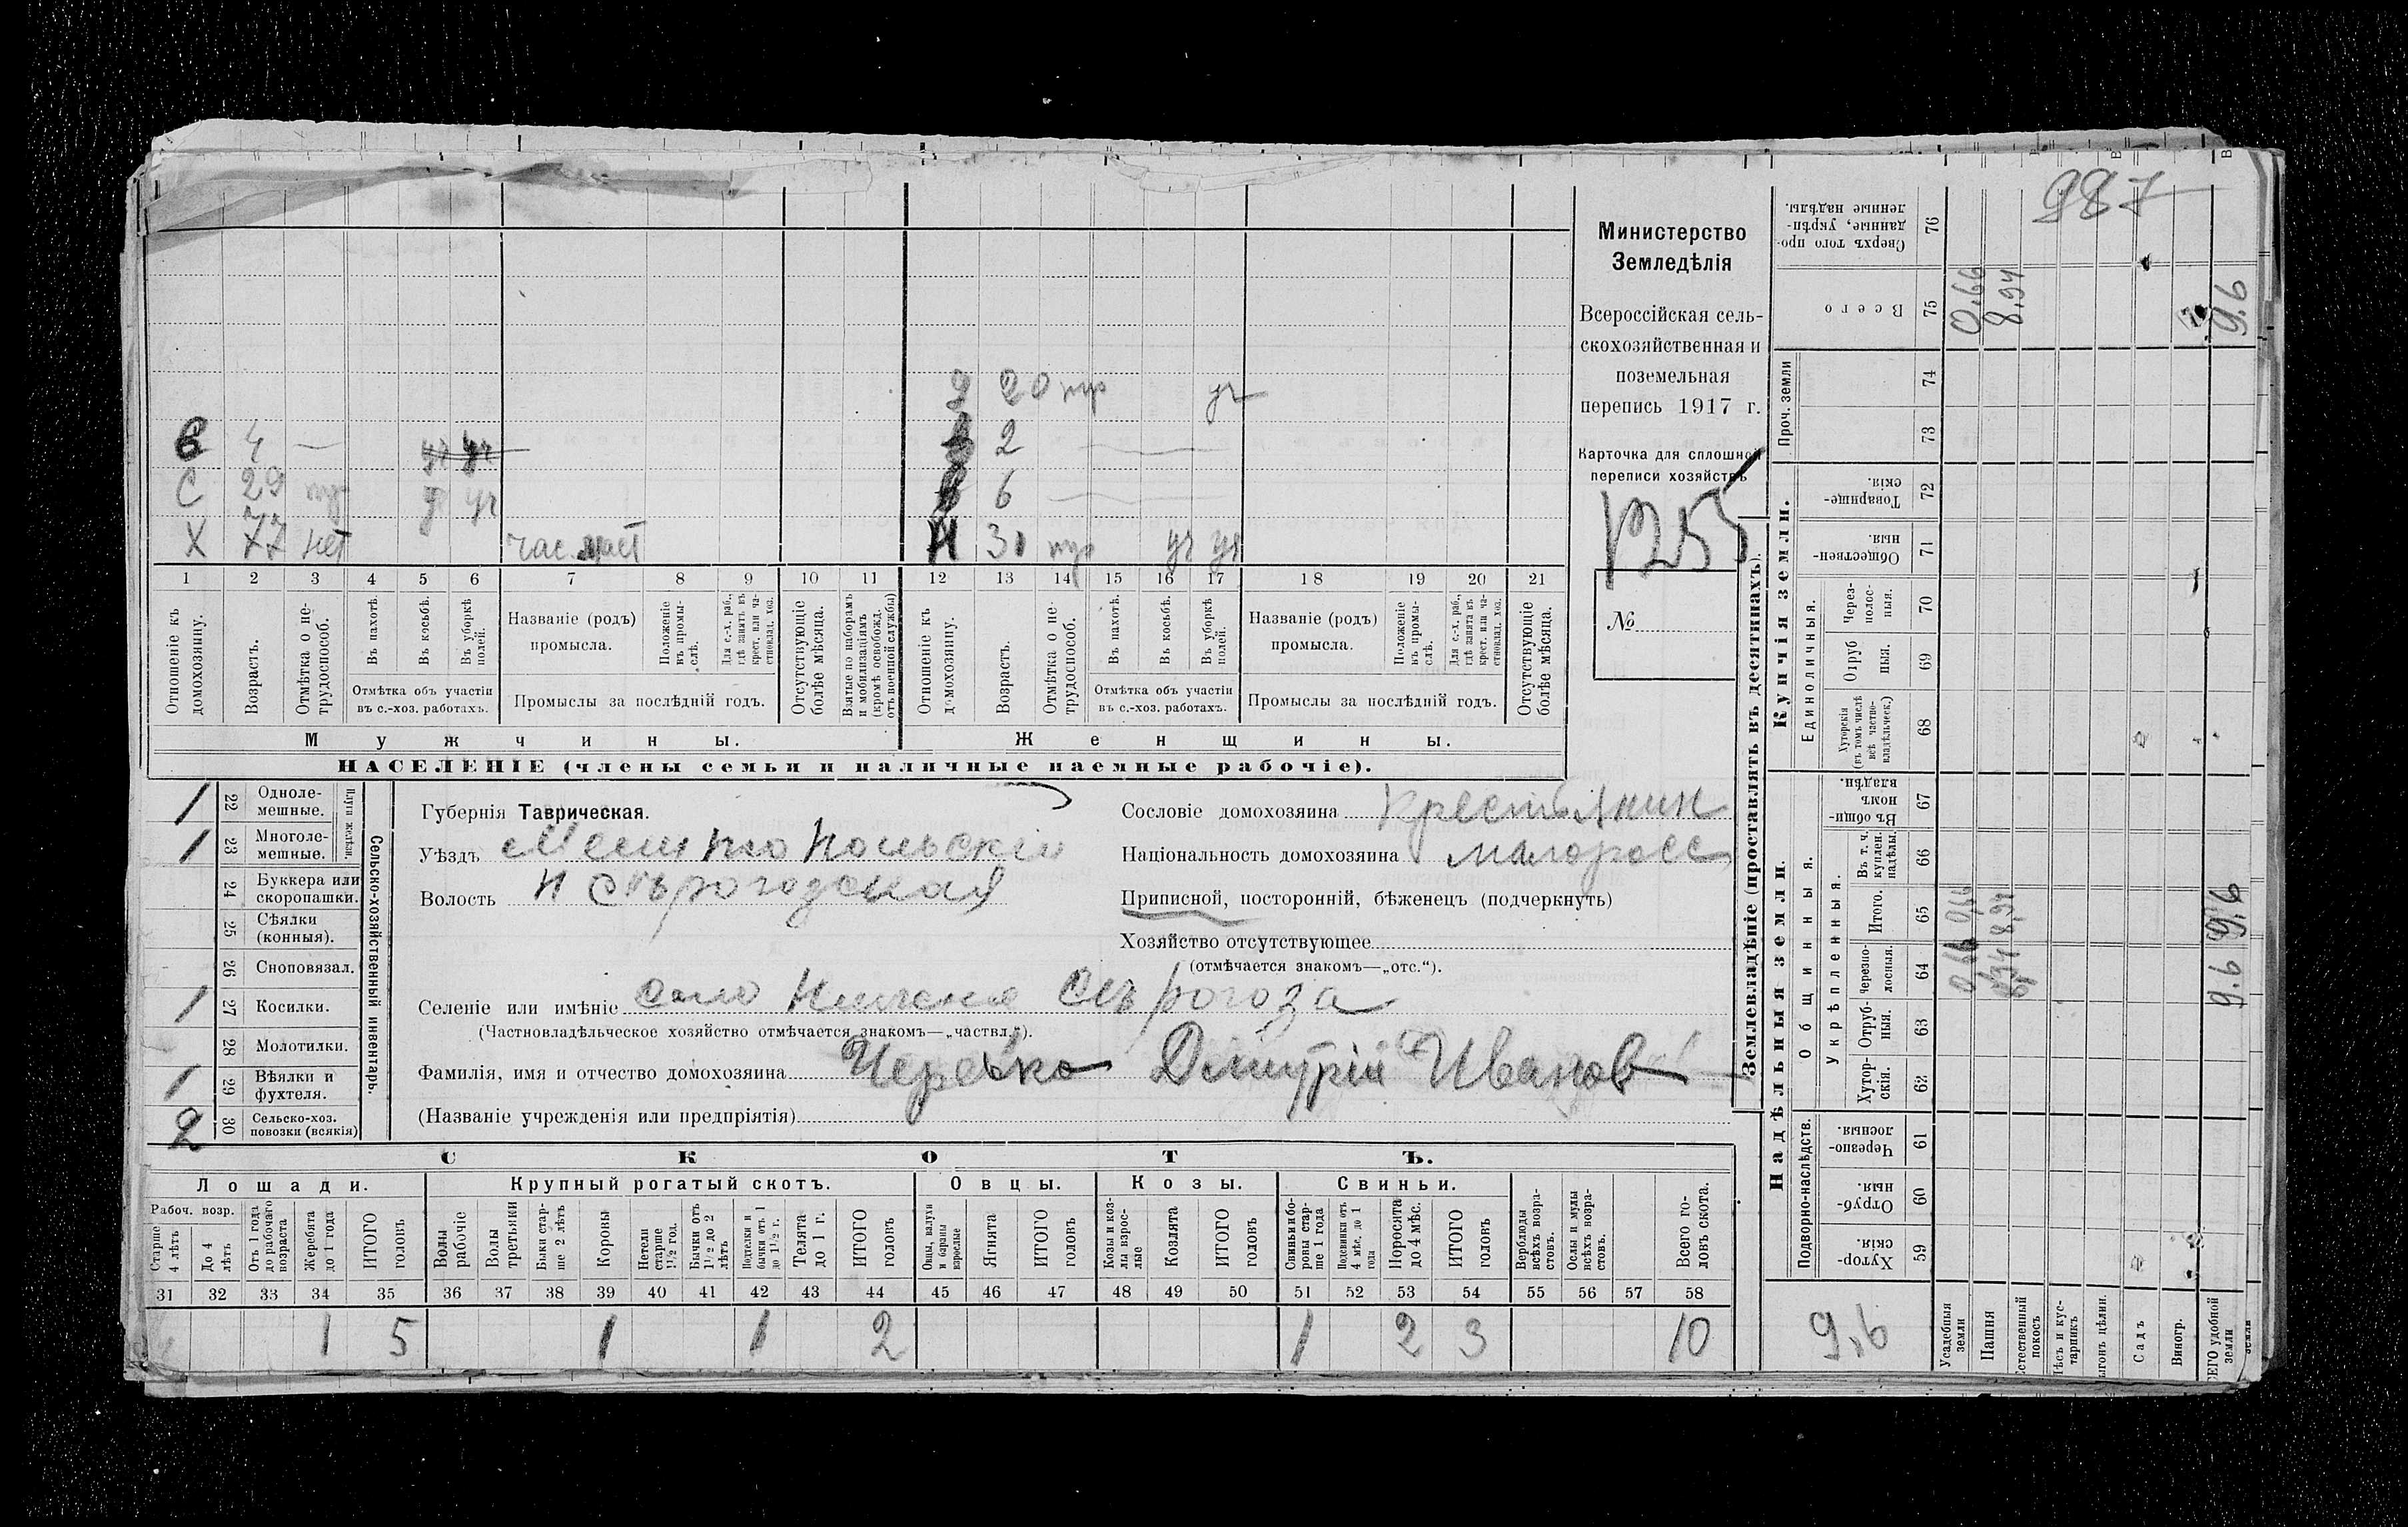 987
Министерство
Земледѣлія
Всероссійская сель-
скохозяйственная и
поземельная
перепись 1917 г.
Карточка для сплошной
переписи хозяйствъ
1255
№
2 20
в 4 —
2 —
С 29
6 —
Х 77 нет
1 2 3 4 5 6 7 8 9 10 11 12 13 14 15 16 17 18 19 20 21
Отношеніе къ домохозяину.
Возрастъ.
Отмѣтка о не-трудоспособ.
Въ пахотѣ.
Въ косьбѣ.
Въ уборкѣ полей.
Отмѣтка объ участіи
въ с.-хоз. работахъ.
Названіе (родъ)
промысла.
Положеніе въ промы-слѣ.
Для с.-х. раб., гдѣ занятъ въ крест. или ча-стновлад. хоз.
Промыслы за послѣдній годъ.
Отсутствующіе болѣе мѣсяца.
Взятые по наборамъ и мобилизаціямъ (кромѣ освобожд. отъ военной службы)
Отношеніе къ домохозяину.
Возрастъ.
Отмѣтка о не-трудоспособ.
Въ пахотѣ.
Въ косьбѣ.
Въ уборкѣ полей.
Отмѣтка объ участіи
въ с.-хоз. работахъ.
Названіе (родъ)
промысла.
Положеніе въ промы-слѣ.
Для с.-х. раб., гдѣ занята въ крест. или ча-стновлад. хоз.
Промыслы за послѣдній годъ.
Отсутствующіе болѣе мѣсяца.
Мужчины.
Женщины.
НАСЕЛЕНІЕ (члены семьи и наличные наемные рабочіе).
Сельско-хозяйственный инвентарь.
Плуги желѣзн.
1 22 Одноле-мешные.
1 23 Многоле-мешные.
24 Буккера или скоропашки.
25 Сѣялки (конныя).
26 Сноповязал.
1 27 Косилки.
28 Молотилки.
1 29 Вѣялки и фухтеля.
2 30 Сельско-хоз. повозки (всякія)
Губернія Таврическая.
Уѣздъ Мелитопольскій
Волость Н Сѣрогозская
Сословіе домохозяина Крестьянин
Національность домохозяина малоросс
Приписной, посторонній, бѣженецъ (подчеркнуть)
Хозяйство отсутствующее
(отмѣчается знакомъ—„отс.“).
Селеніе или имѣніе село Нижния Сѣрогоза
(Частновладѣльческое хозяйство отмѣчается знакомъ—„частвл.“).
Фамилія, имя и отчество домохозяина Черевко Дмитрій Иванов
(Названіе учрежденія или предпріятія)
СКОТЪ.
Лошади. Крупный рогатый скотъ. Овцы. Козы. Свиньи.
Рабоч. возр.
Старше 4 лѣтъ
До 4 лѣтъ
Отъ 1 года до рабочаго возраста
Жеребята до 1 года
ИТОГО головъ
Волы рабочіе
Волы третьяки
Быки стар-ше 2 лѣтъ
Коровы
Нетели старше 1½ год.
Бычки отъ 1½ до 2 лѣтъ
Подтелки и бычки отъ 1 до 1½ г.
Телята до 1 г.
ИТОГО головъ
Овцы, валухи и бараны взрослые
Ягнята
ИТОГО головъ
Козы и коз-лы взрос-лые
Козлята
ИТОГО головъ
Свиньи и бо-ровы стар-ше 1 года
Подсвинки отъ 4 мѣс. до 1 года
Поросята до 4 мѣс.
ИТОГО головъ
Верблюды всѣхъ возра-стовъ.
Ослы и мулы всѣхъ возра-стовъ.
Всего го-ловъ скота.
31 32 33 34 35 36 37 38 39 40 41 42 43 44 45 46 47 48 49 50 51 52 53 54 55 56 57 58
1 5 1 1 2 1 2 3 10
Землевладѣніе (проставлять въ десятинахъ).
Надѣльныя земли.
Купчія земли.
Проч. земли
Подворно-наслѣдств.
Общинныя.
Укрѣпленныя.
Единоличныя.
Хутор-скія. 59
Отруб-ныя. 60
Черезпо-лосныя. 61
Хутор-скія. 62
Отруб-ныя. 63
Черезпо-лосныя. 64
Итого. 65
Въ т. ч. куплен. надѣлы. 66
Въ общин-номъ владѣн. 67
Хуторскія (въ томъ числѣ всѣ частно-владѣльческ.) 68
Отруб ныя. 69
Через-полос-ныя. 70
Обществен-ныя. 71
Товарище-скія. 72
73
74
Всего 75
Сверхъ того про-данные, укрѣп-ленные надѣлы. 76
0,66
8,94
9,6
0,66
8,94
9.6
9.6
9,6
Усадебныя земли
Пашня
Естественный покосъ
Лѣсъ и кус-тарникъ
Садъ
Виногр.
удобной земли